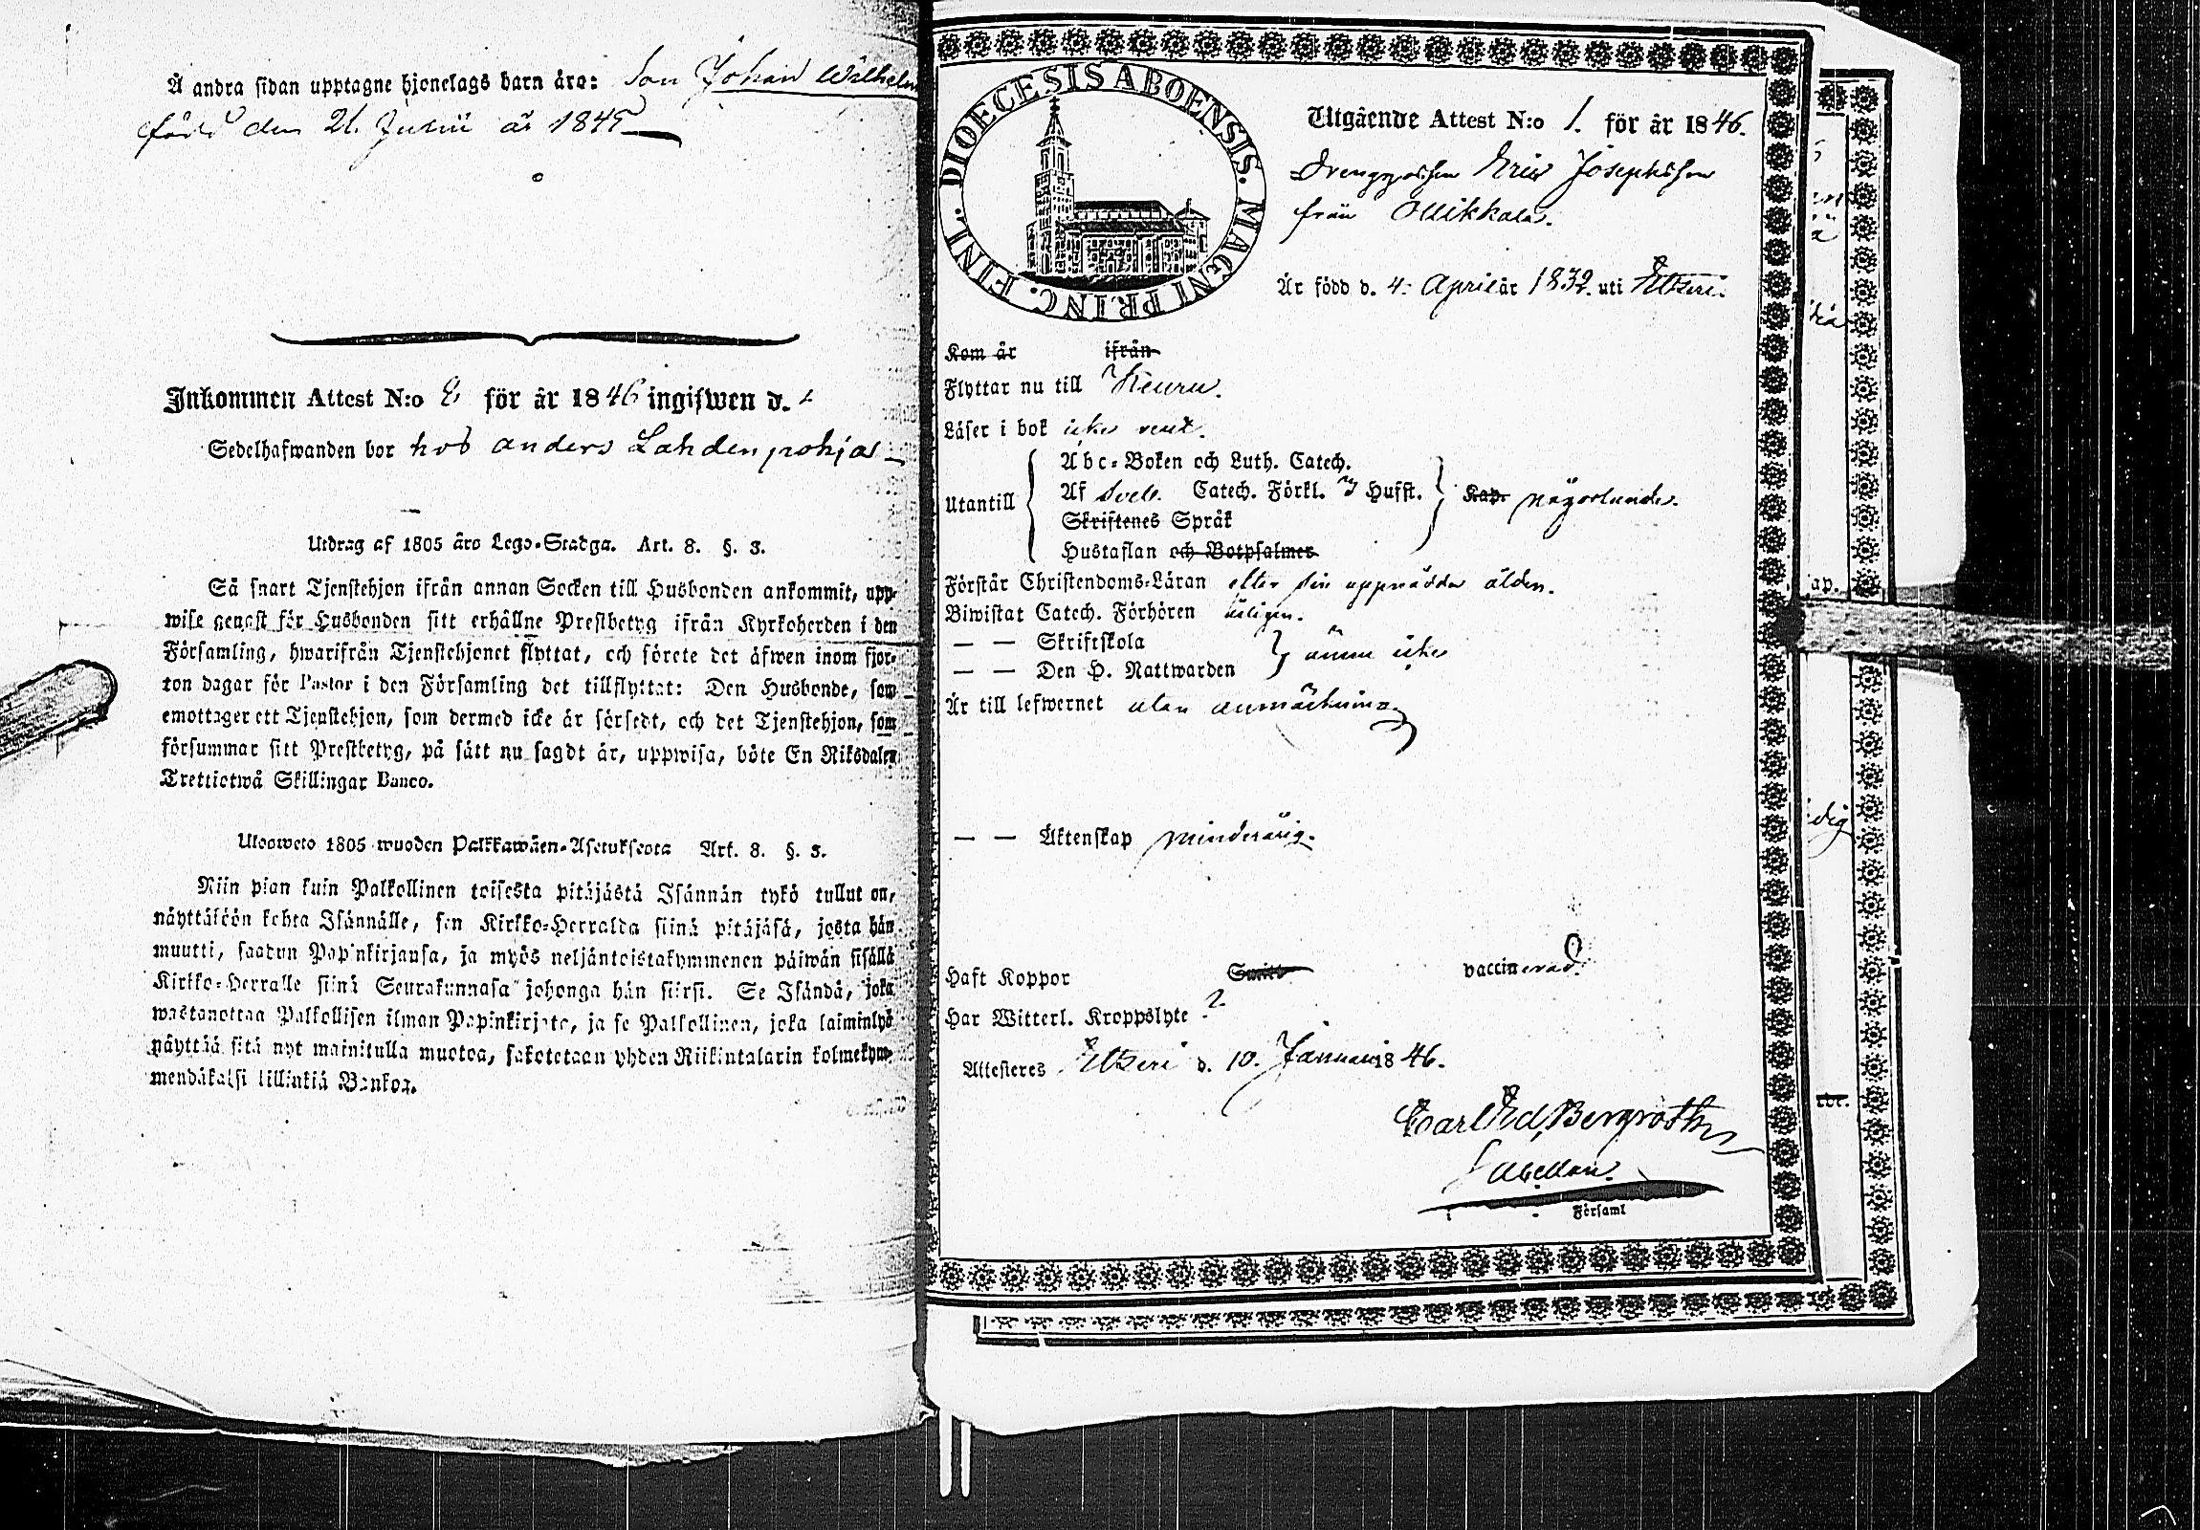 Å andra sidan upptagne hjonelags barn äro: Son Johan Wilhelm
född den 21. Junii år 1845
Inkommen Attest N:o 2, för år 1846 ingifwen d.
Sedelhafwanden bor hos Anders Lahdenpohja
Utdrag af 1805 års Lego-Stadga. Art. 8. §. 3.
Så snart Tjenstehjon ifrån annan Socken till Husbonden ankommit, upp-
wise genast för Husbonden sitt erhållne Prestbetyg ifrån Kyrkoherden i den
Församling, hwarifrån Tjenstehjonet flyttat, och förete det äfwen inom fjor-
ton dagar för Pastor i den Församling det tillflyttat: Den Husbonde, som
emottager ett Tjenstehjon, som dermed icke är försedt, och det Tjenstehjon, som
försummar sitt Prestbetyg, på sätt nu sagdt är, uppwisa, böte En Riksdaler
Trettiotwå Skillingar Banco.
Ulosweto 1805 wuoden Palkkawäen-Asetuksesta Art. 8. §. 3.
Niin pian kuin Palkollinen toisesta pitäjästä Isännän tykö tullut on,
näyttäköön kohta Isännälle, sen Kirkko-Herralda siinä pitäjäsä, josta hän
muutti, saadun Papinkirjansa, ja myös neljäntoistakymmenen päiwän sisällä
Kirkko-Herralle siinä Seurakunnasa johonga hän siirsi. Se Isändä, joka
wastanottaa Palkollisen ilman Papinkirjata, ja se Palkollinen, joka laiminlyö
näyttää sitä nyt mainitulla muotoa, sakotetaan yhden Riikintalarin kolmekym-
mendäkaksi killinkiä Bankoa.
DIOECESIS ABOENSIS. MAGNI PRINC. FINL.
Utgående Attest N:o 1. för år 1846.
Drenggossen Eric Josephsson
från Ollikkala.
Är född d. 4. April år 1832. uti Etseri.
Kom år ifrån
Flyttar nu till Keuru.
Läser i bok icke rent.
Abc-Boken och Luth. Catech.
Utantill Af Sveb. Catech. Förkl. Hufst. Kap. någorlunda.
Skriftenes Språk
Hustaflan och Botpsalmer
Förstår Christendoms-Läran efter sin uppnådda ålder.
Biwistat Catech. Förhören årligen.
— — Skriftskola
— — Den H. Nattwarden ännu icke
Är till lefwernet utan anmärkning
— — Äktenskap minderårig.
Haft Koppor Smitt vaccinerad.
Har Witterl. Kroppslyte ?
Attesteres Etseri d. 10. Januari 1846.
Carl Ed. Bergroth
Församl